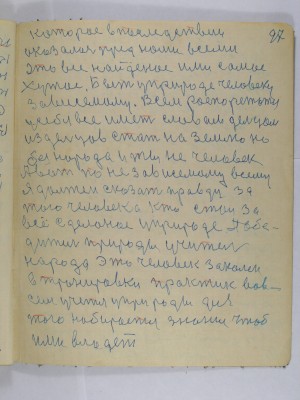 97
которое впоследствии
оказался пред нами всеми
это все найденое ими самое
хужае. Быть у природе человеку
зависемому. Всем распоретжатся
у себя все имет словам делцом
из делцов стат на Землю но
без народа и тки не человек
Явит по не зависемому всему
Я должен сказат правду за
того человека кто стои за
всё сделоное у природе Я ба-
дител природы учител
народа это человек закалки
в тренировки практик вов-
сем учится у природы для
того набирается знании чтоб
ими владет